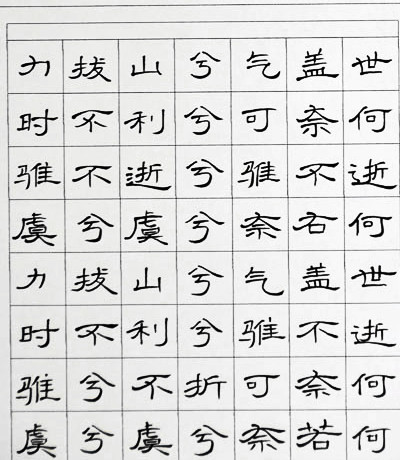 力拔山兮气盖世
时不利兮可奈何
骓不逝兮骓不逝
虞兮虞兮奈右何
力拔山兮气盖世
时不利兮骓不逝
骓兮不折可奈何
虞兮虞兮奈若何